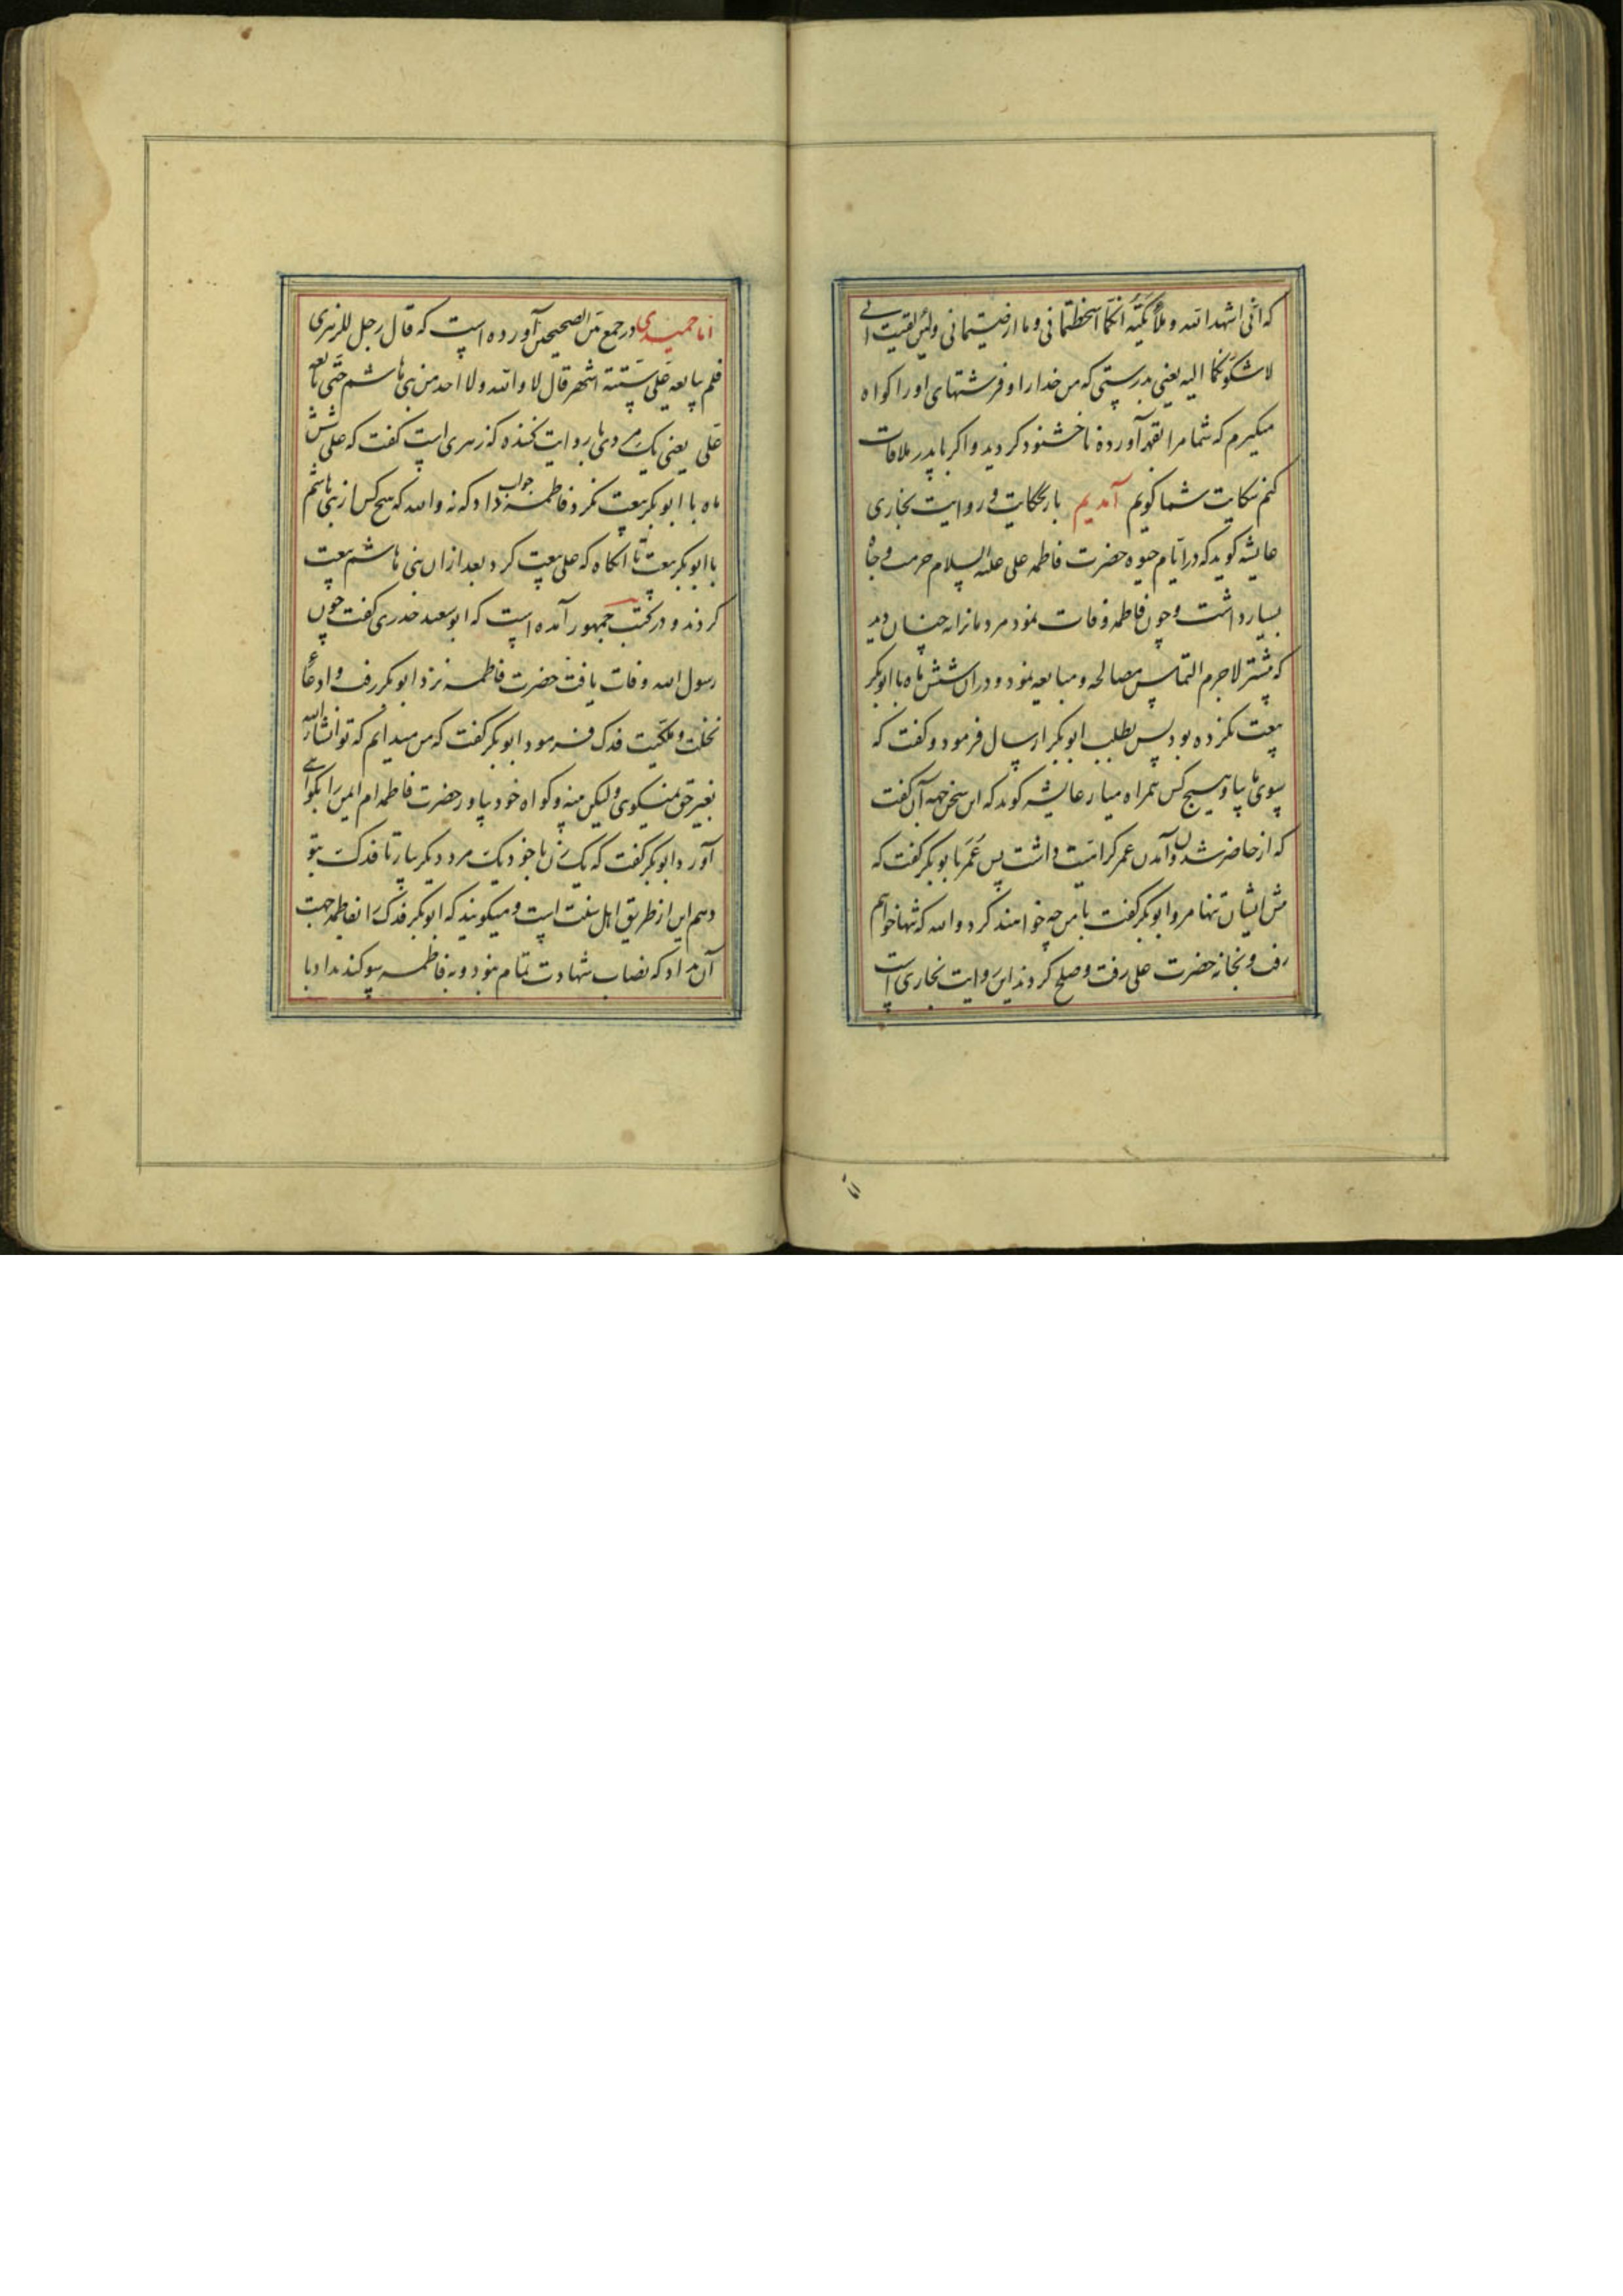 که انی اشهد الله و ملائکته انکما اسخطتمانی و ما ارضیتمانی ولئن لقیت ابی
لاشکونکما الیه یعنی بدرستی که من خدا را و فرشتهای او را کواه
میکیرم که شما مرا بقهر آورده ناخشنود کردید و اکر با پدر ملاقات
کنم شکایت شما کویم آمدیم بار بحکایت و روایت بخاری
عایشه کوید که در ایام حیوه حضرت فاطمه علی علیه السلام حرمت و جاه
بسیار داشت و چون فاطمه وفات نمود مردمانرا نه چنان دید
که پیشتر لاجرم التماس مصالحه و مبایعه نمود و در ان شش ماه با ابوبکر
بیعت نکرده بود پس بطلب ابوبکر ارسال فرمود و کفت که
بسوی ما بیا و هیچ کس همراه میار عایشه کوید که این سخن جهه آن کفت
که از حاضر شدن و آمدن عمر کراهیت داشت پس عمر با بوبکر کفت که
پیش ایشان تنها مرو ابوبکر کفت با من چه خواهند کرد والله که تنها خواهم
رفت و بخانه حضرت علی رفت و صلح کردند این روایت بخاری است
اما حمیدی در جمع بین الصحیحین آورده است که قال رجل للزهری
فلم یبایعه علی ستتة اشهر قال لا والله ولا احد من بنی هاشم حتی بایعه
علی یعنی یک مردی با روایت کننده که زهری است کفت که علی شش
ماه با ابوبکر بیعت نکرد فاطمه جواب داد که نه والله که هیچ کس از بنی هاشم
با ابوبکر بیعت تا انکاه که علی بیعت کرد بعد از ان بنی هاشم بیعت
کردند و در کتب جمهور آمده است که ابوسعید خدری کفت چون
رسول الله وفات یافت حضرت فاطمه نزد ابوبکر رفت و ادعای
نحلت و ملکیت فدک فرمود ابوبکر کفت که من میدانم که تو انشاء الله
بغیر حق نمیکوی ولیکن بینه و کواه خود بیاور حضرت فاطمه ام ایمن را بکواهی
آورد ابوبکر کفت که یک زن با خود یک مرد دیکر بیار تا فدک بتو
دهم این از طریق اهل سنت است و میکویند که ابوبکر فدک را بفاطمه جهت
آن نداد که نصاب شهادت تمام نبود و به فاطمه سوکند نداد با